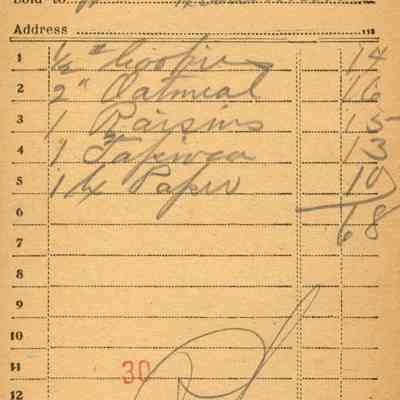 Sold to
Address
1 ½ # 14
2 2 " Oatmeal 16
3 1 Raisins 15
4 1 Tapioca 13
5 1 Paper 10
6 68
7
8
9
10
11 30
12